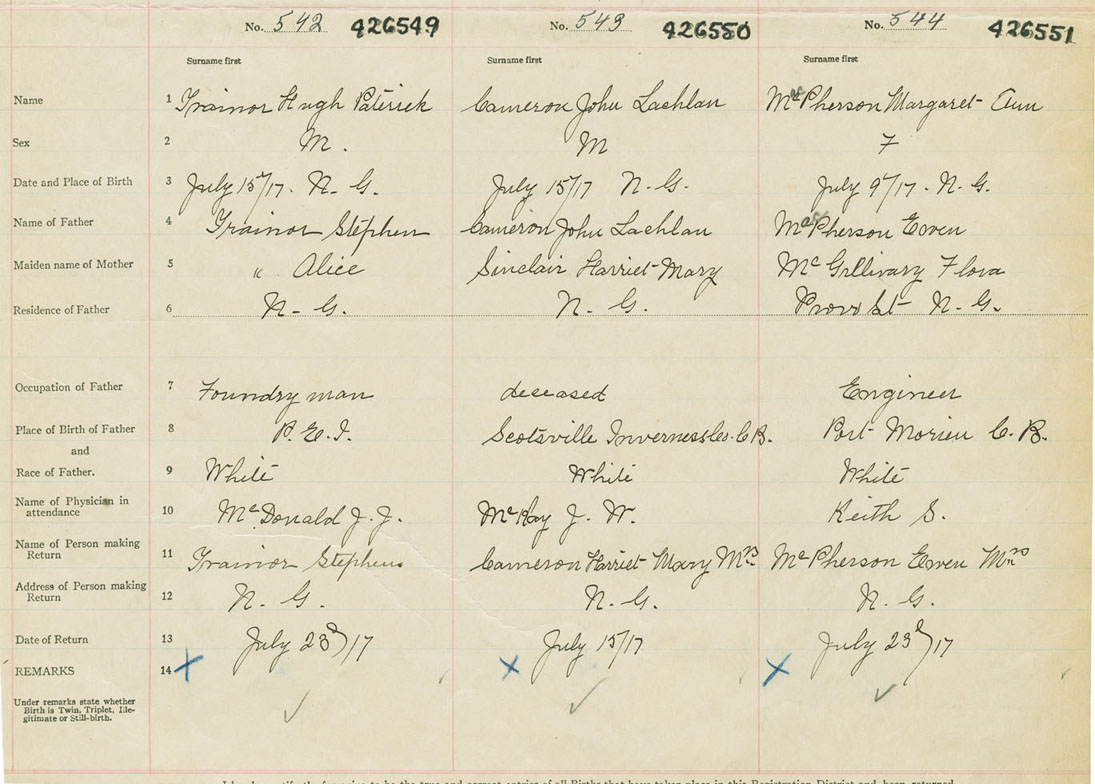 No. 542 426549 No. 543 426550 No. 544 426551
Surname first Surname first Surname first
Name 1 Trainor Hugh Paterick Cameron John Lachlan McPherson Margaret Ann
Sex 2 M. M F
Date and Place of Birth 3 July 15/17. N. G. July 15/17 N. G. July 9/17. N. G.
Name of Father 4 Trainor Stephen Cameron John Lachlan McPherson Ewen
Maiden name of Mother 5 " Alice Sinclair Harriet Mary McGillivary Flora
Residence of Father 6 N. G. N. G. Provost N. G.
Occupation of Father 7 Foundry man deceased Engineer
Place of Birth of Father 8 P. E. I. Scotsville Inverness Co. C. B. Port Morien C. B.
and
Race of Father. 9 White White White
Name of Physician in
attendance 10 McDonald J. J. McKay J. W. Keith S.
Name of Person making
Return 11 Trainor Stephen Cameron Harriet Mary Mrs. McPherson Ewen Mrs
Address of Person making
Return 12 N. G. N. G. N. G.
Date of Return 13 July 23d/17 July 15/17 July 23d/17
REMARKS 14
Under remarks state whether
Birth is Twin, Triplet, Ille-
gitimate or Still-birth.